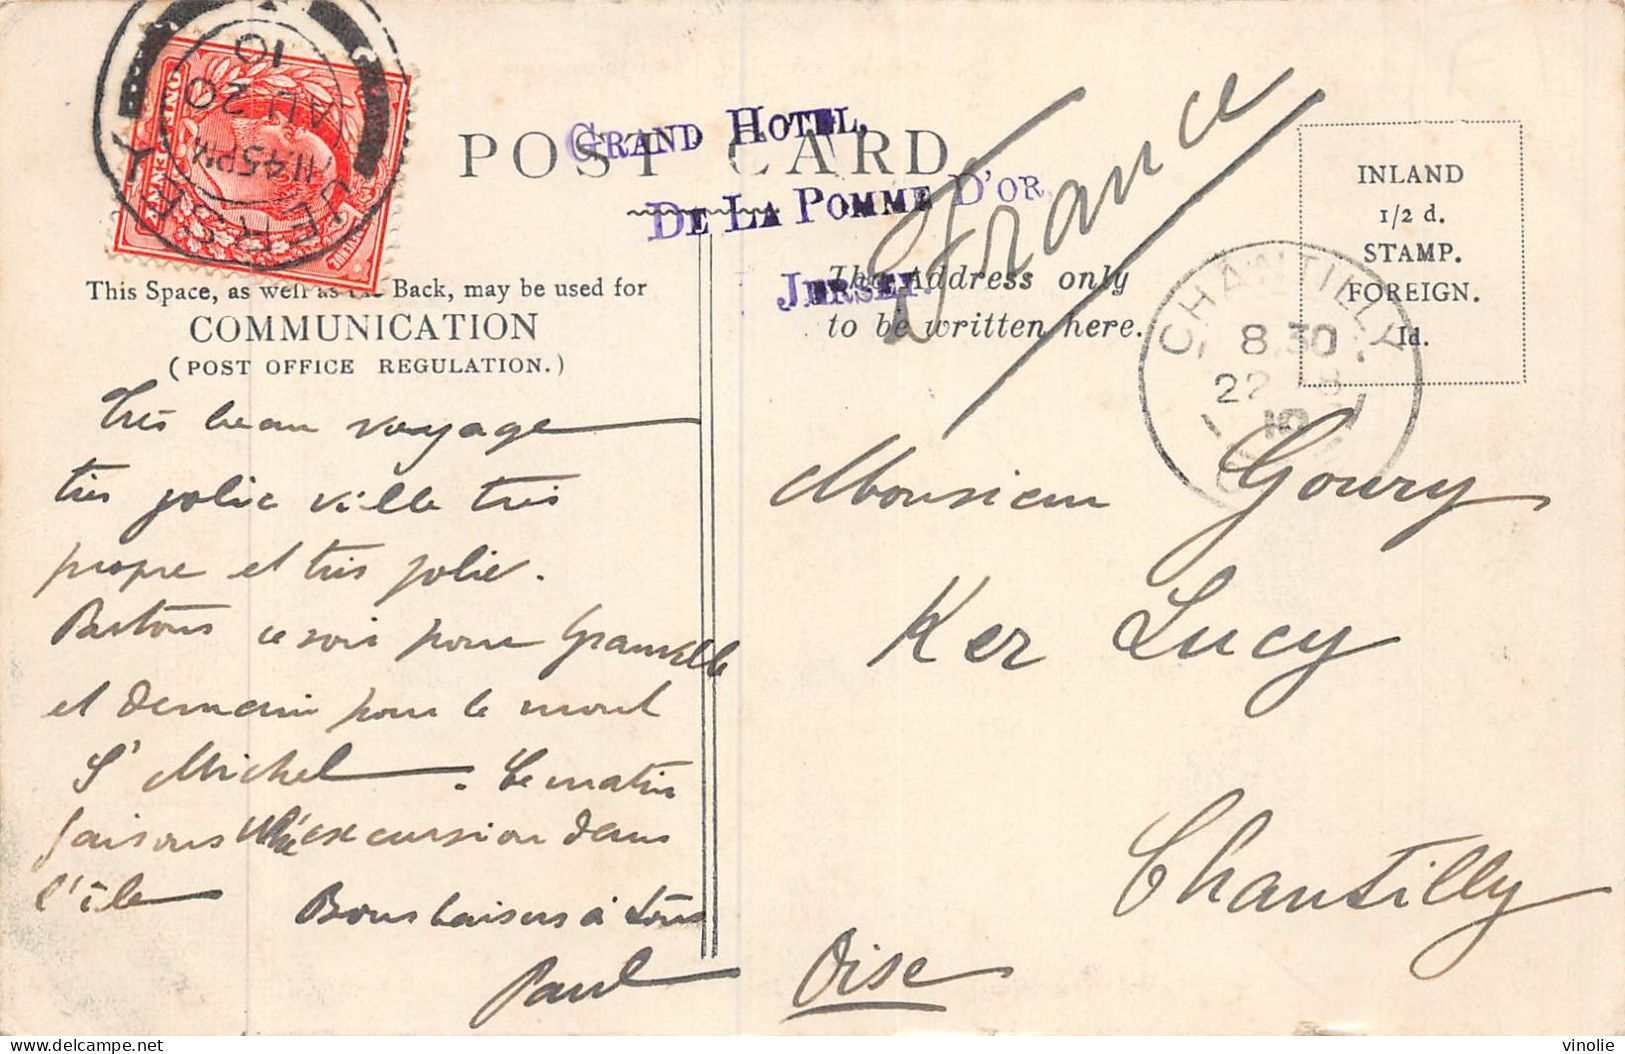 JERSEY
11.45PM
AU 20
10
POST CARD
GRAND HOTEL,
DE LA POMME D'OR,
JERSEY.
France
INLAND
1/2 d.
STAMP.
FOREIGN.
Id.
CHANTILLY
8 30
22
10
This Space, as well as the Back, may be used for
COMMUNICATION
(POST OFFICE REGULATION.)
The Address only
to be written here.
Très beau voyage
très jolie ville très
propre et très jolie.
Partons ce soir pour Granville
et demain pour le mont
St Michel. Ce matin
faisons une excursion dans
l'île
Bons baisers à tous
Paul
Monsieur Goury
Ker Lucy
Chantilly
Oise
delcampe.net
vinolie